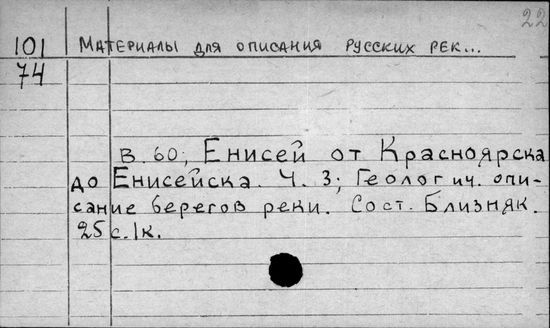 22
101 Материалы для описания русских рек...
74
В. 60; Енисей от Красноярска
до Енисейска. Ч. 3; Геологич. опи-
сание берегов реки. Сост. Близняк.
25 с. 1к.